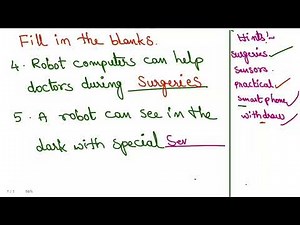 Fill in the blanks.
4. Robot computers can help
doctors during Surgeries
5. A robot can see in the
dark with special Sen
Hints:-
surgeries
sensors
practical
smart phone
withdraw